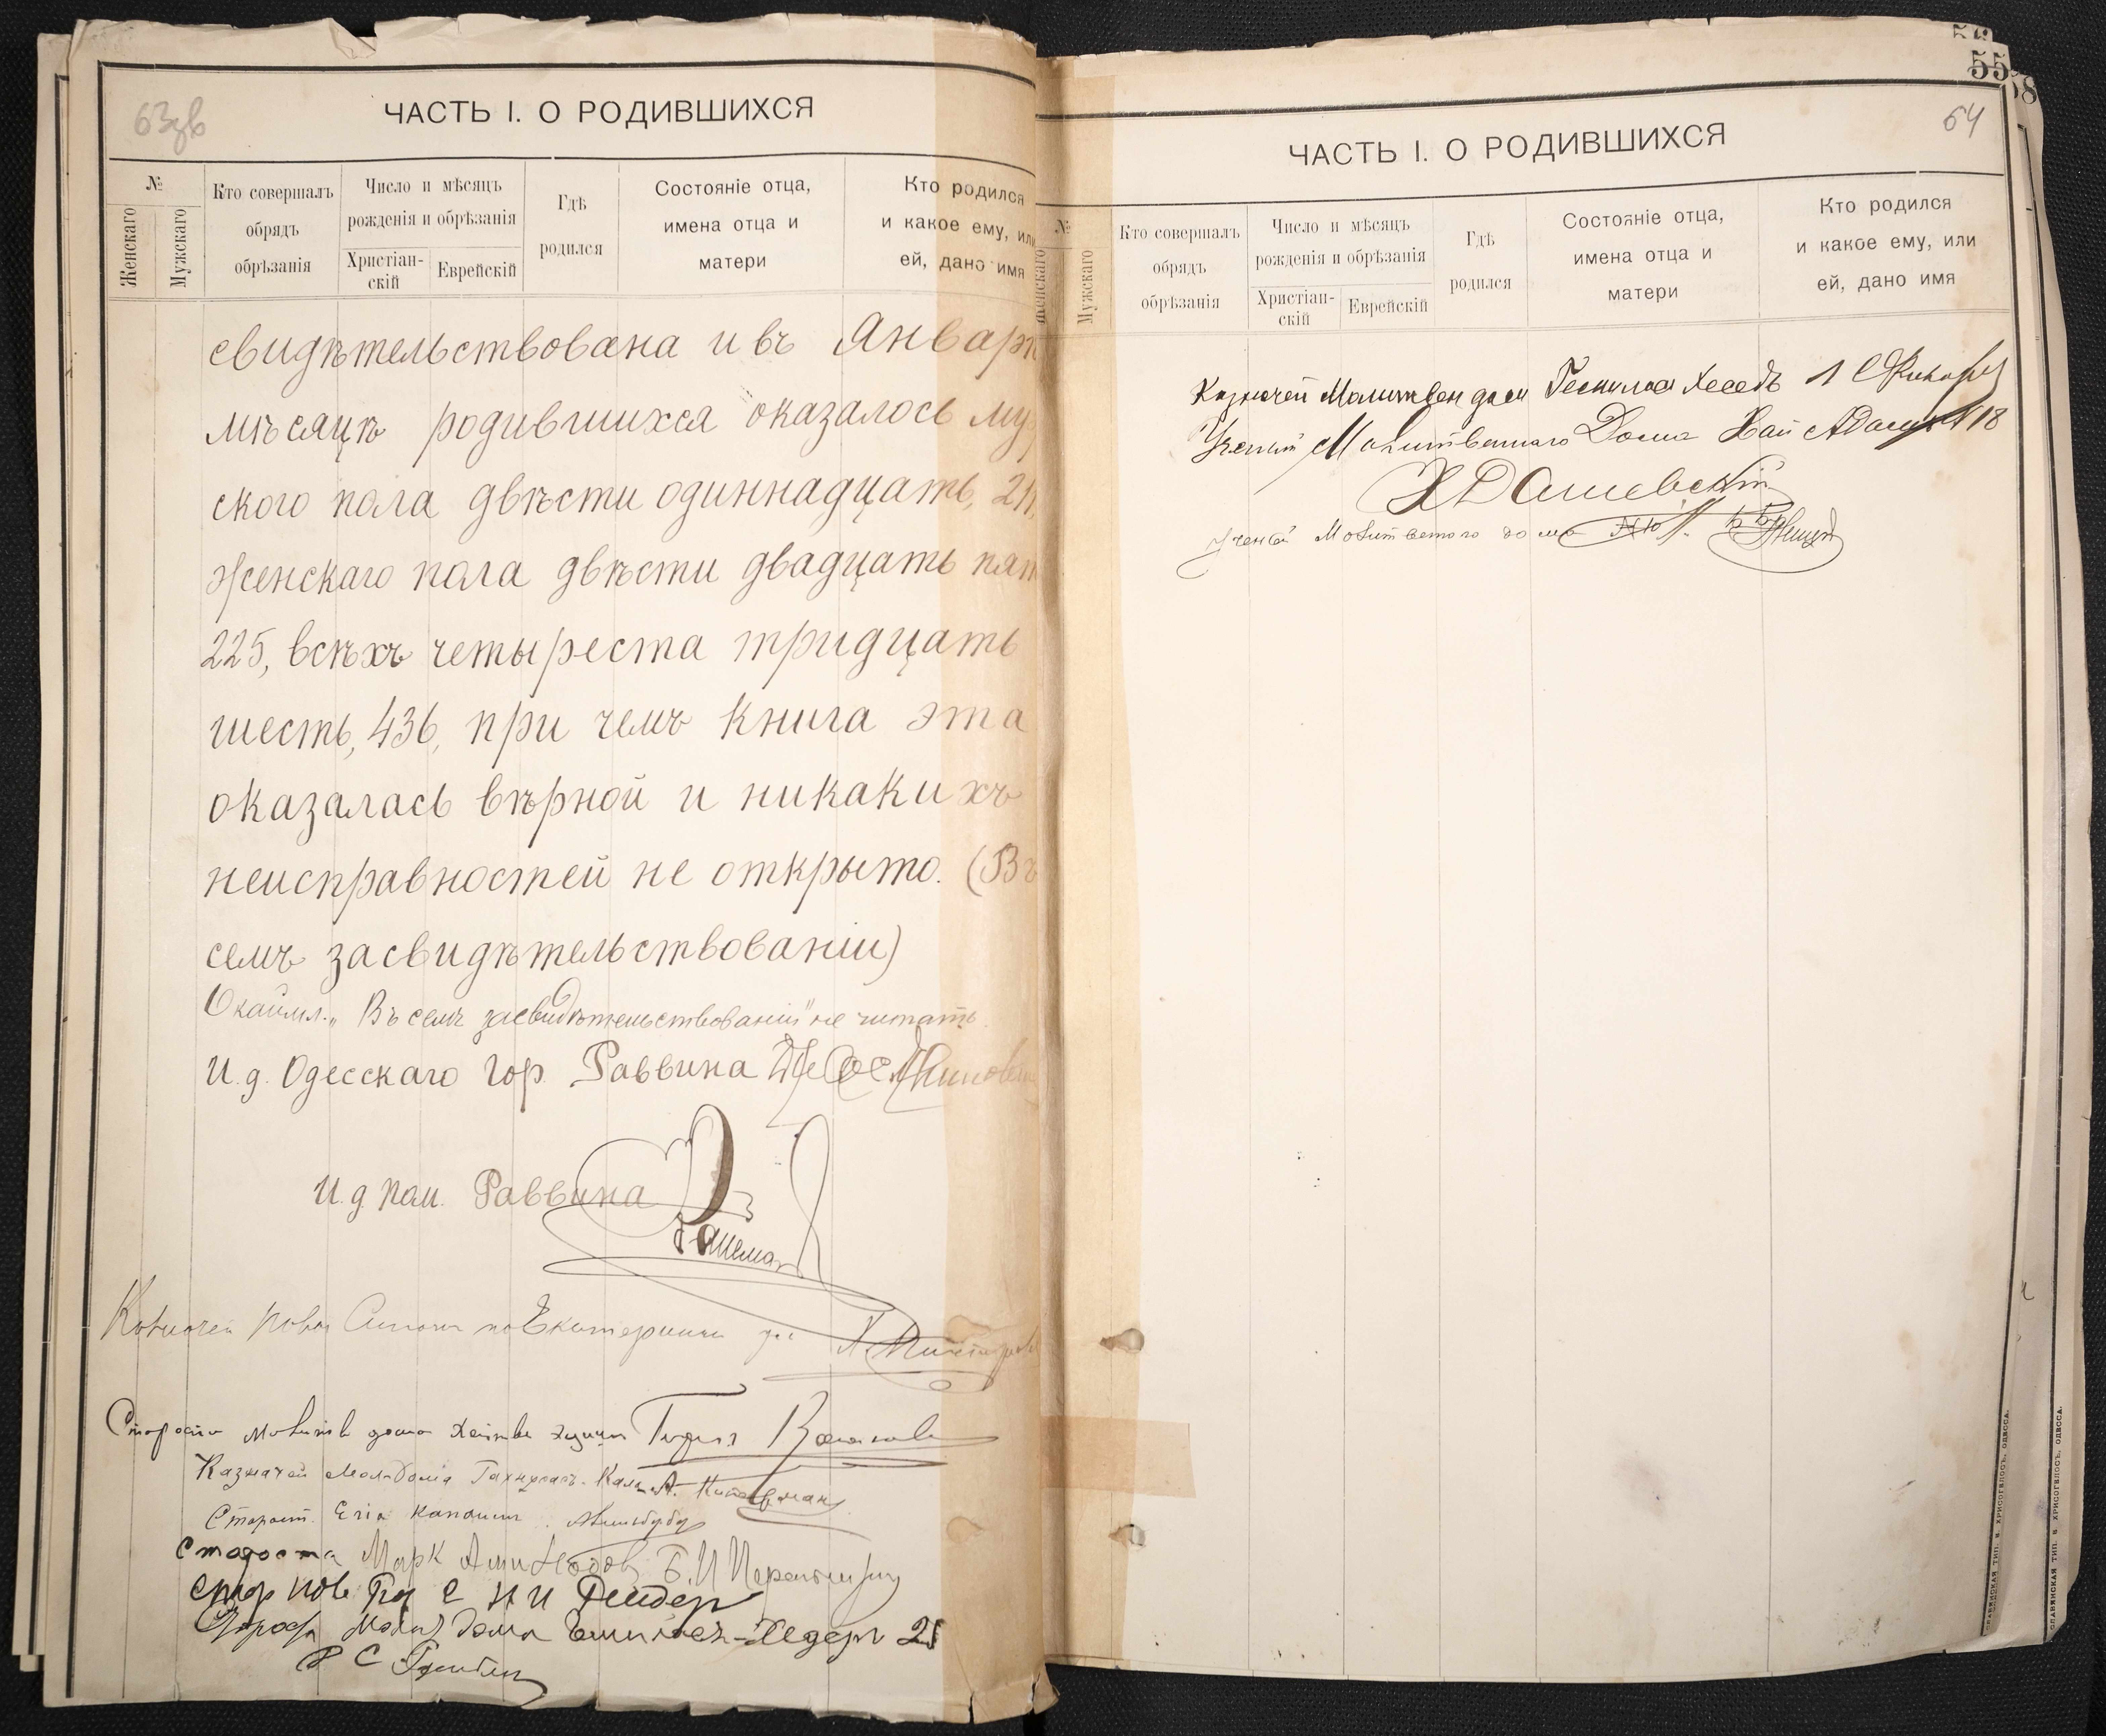 63зв
ЧАСТЬ I. О РОДИВШИХСЯ
№
Женскаго
Мужскаго
Кто совершалъ
обрядъ
обрѣзанія
Число и мѣсяцъ
рожденія и обрѣзанія
Христіан-
скій
Еврейскій
Гдѣ
родился
Состояніе отца,
имена отца и
матери
Кто родился
и какое ему, или
ей, дано имя
свидѣтельствована и въ Январѣ
мѣсяцѣ родившихся оказалось му
ского пола двѣсти одиннадцать, 211,
женскаго пола двѣсти двадцать пят
225, всѣхъ четыреста тридцать
шесть, 436, при чемъ книга эта
оказалась вѣрной и никакихъ
неисправностей не открыто. (Въ
семъ засвидѣтельствованіи)
Окаймл. „Въ семъ засвидѣтельствованіи" не читать.
И. д. Одесскаго Гор. Раввина
И. д. пом. Раввина
Староста
Казначей
Старост.
Староста Марк
Стар
Молит дома
55
58
64
ЧАСТЬ I. О РОДИВШИХСЯ
№
Женскаго
Мужскаго
Кто совершалъ
обрядъ
обрѣзанія
Число и мѣсяцъ
рожденія и обрѣзанія
Христіан-
скій
Еврейскій
Гдѣ
родился
Состояніе отца,
имена отца и
матери
Кто родился
и какое ему, или
ей, дано имя
Казначей Молитвен дом Гемилас Хеседъ
Ученый Молитвеннаго Дома Хай Адам 18
Х Дашевскій
Ученый Молитвеного дома
СЛАВЯНСКАЯ ТИП. Н. ХРИСОГЕЛОСЪ. ОДЕССА.
СЛАВЯНСКАЯ ТИП. Н. ХРИСОГЕЛОСЪ. ОДЕССА.